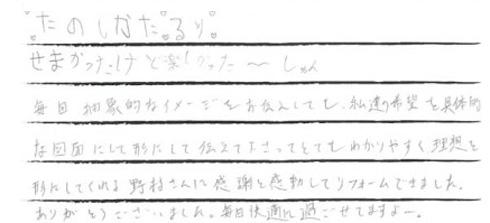 たのしかた るり
せまかったけど楽しかった〜 しゅん
毎回 抽象的なイメージをお伝えしても、私達の希望を具体的
な図面にして形にして伝えて下さってとてもわかりやすく理想を
形にしてくれる野村さんに感謝と感動してリフォームできました。
ありがとうございました。毎日快適に過ごせてますよー。